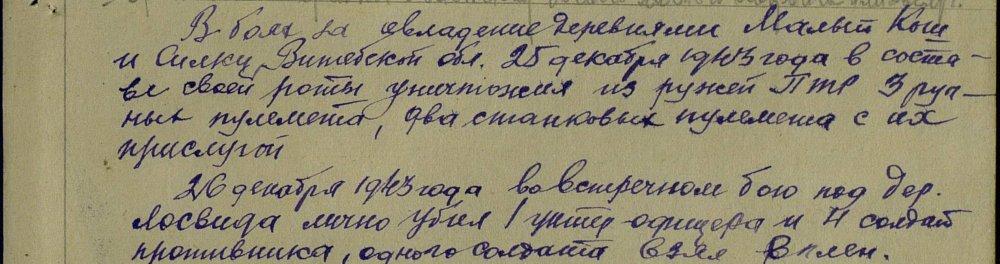 В боях за овладение деревнями Малый Кош
и Силку, Витебской обл. 25 декабря 1943 года в соста-
ве своей роты уничтожил из ружей ПТР 3 руч-
ных пулемета, два станковых пулемета с их
прислугой
26 декабря 1943 года во встречном бою под дер.
Лосвида лично убил 1 унтер-офицера и 4 солдат
противника, одного солдата взял в плен.